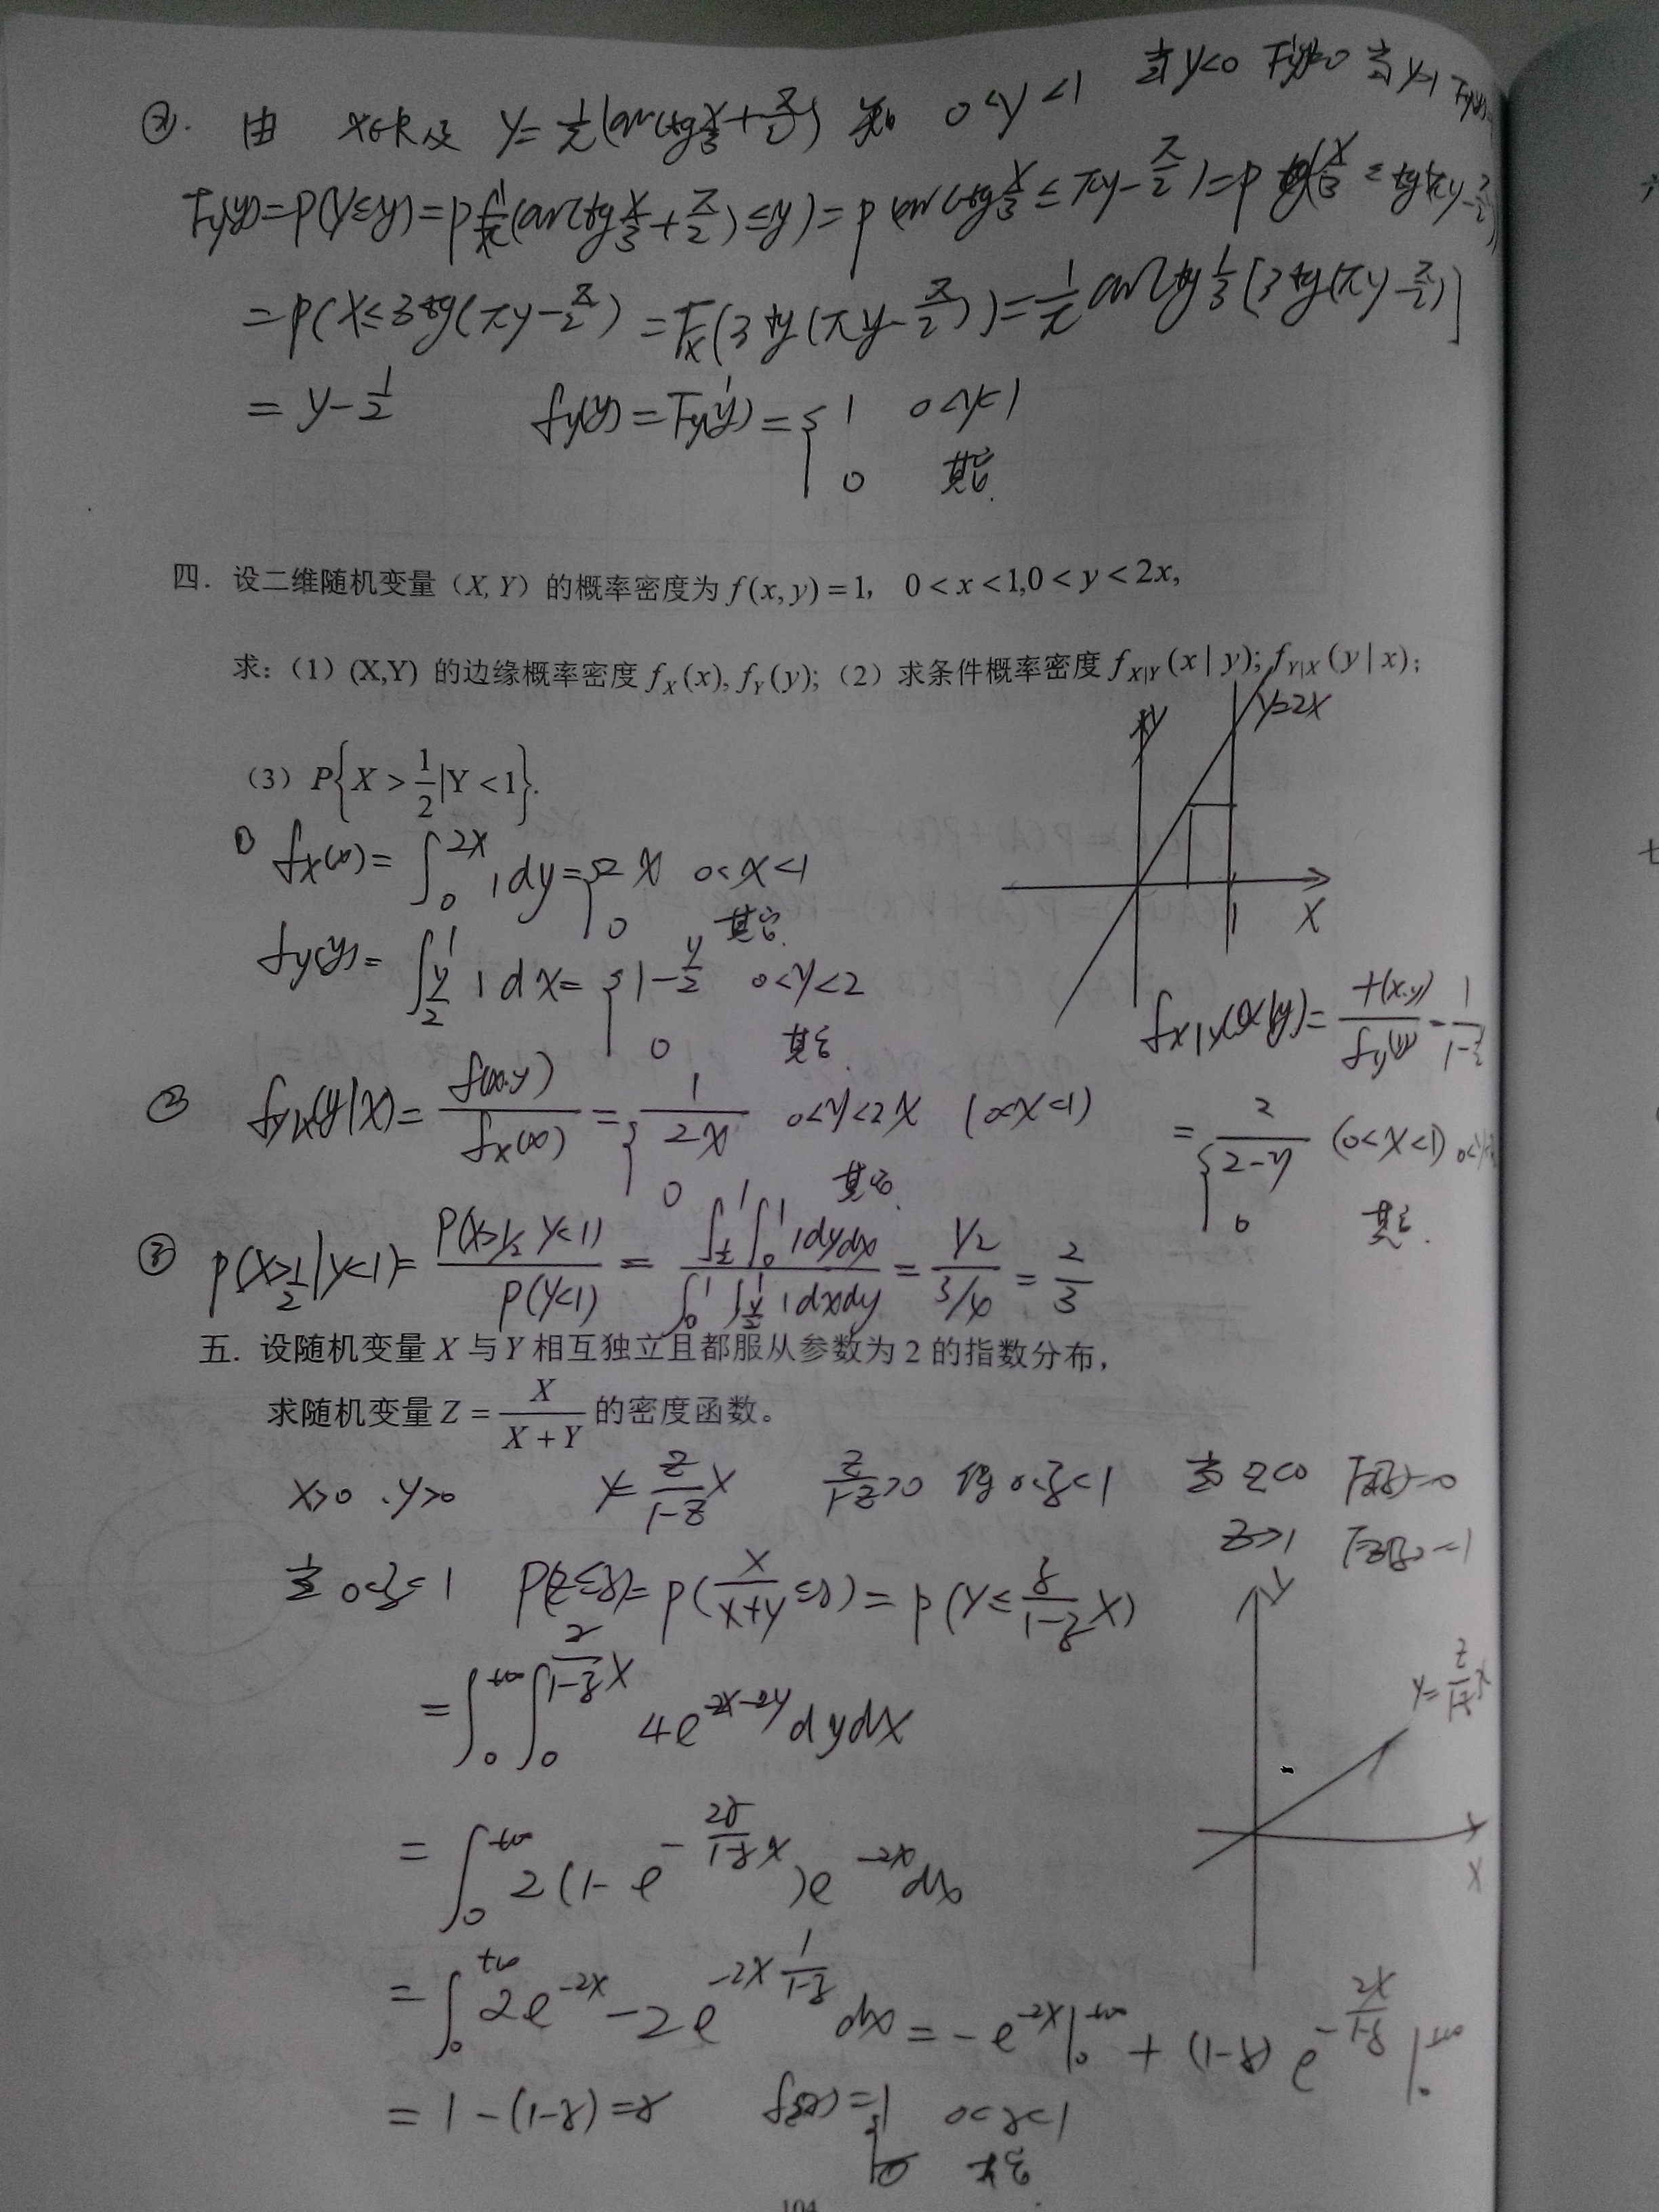 ②. 由 X∈R及 Y=1/π(arctg X/3+π/2) 知 0<y<1 当y<0 Fy(y)=0 当y>1 Fy(y)=
Fy(y)=P(Y≤y)=P(1/π(arctg X/3+π/2)≤y)=P(arctg X/3≤πy-π/2)=P(X/3≤tg(πy-π/2))
=P(X≤3tg(πy-π/2))=Fx(3tg(πy-π/2))=1/π arctg 1/3[3tg(πy-π/2)]
=y-1/2 fy(y)=Fy'(y)={1 0<y<1
0 其它.
四. 设二维随机变量(X, Y)的概率密度为 f(x, y) = 1, 0 < x < 1,0 < y < 2x,
求:(1) (X,Y) 的边缘概率密度 f_X(x), f_Y(y);(2)求条件概率密度 f_{X|Y}(x | y); f_{Y|X}(y | x);
y=2x
Y
(3) P{X > 1/2 |Y < 1}.
① fx(x)=∫_0^{2x} 1dy={2x 0<x<1
0 其它.
X
1
fy(y)=∫_{y/2}^1 1dx={1-y/2 0<y<2
0 其它
fx|y(x|y)=f(x.y)/fy(y)=1/(1-y/2)
② fy|x(y|x)=f(x.y)/fx(x)={1/2x 0<y<2x (0<x<1)
0 其它.
={2/(2-y) (0<x<1)
0 其它.
③ P(X>1/2|Y<1)=P(X>1/2 Y<1)/P(Y<1)=∫_{1/2}^1∫_0^1 1dydx/∫_0^1∫_{y/2}^1 1dxdy=(1/2)/(3/4)=2/3
五. 设随机变量 X 与 Y 相互独立且都服从参数为 2 的指数分布,
求随机变量 Z = X/(X + Y) 的密度函数。
x>0 . y>0 y=z/(1-z) x z/(1-z)>0 得 0<z<1 当 z<0 Fz(z)=0
z>1 Fz(z)=1
当 0<z<1 P(Z≤z)=P(X/(X+Y)≤z)=P(Y≤z/(1-z) X)
Y
y=z/(1-z) x
X
=∫_0^{+∞}∫_0^{z/(1-z) x} 4e^{-2x-2y}dydx
=∫_0^{+∞}2(1-e^{-2z/(1-z) x})e^{-2x}dx
=∫_0^{+∞}2e^{-2x}-2e^{-2x 1/(1-z)}dx=-e^{-2x}|_0^{+∞}+(1-z)e^{-2x/(1-z)}|_0^{+∞}
=1-(1-z)=z fz(z)={1 0<z<1
0 其它
104